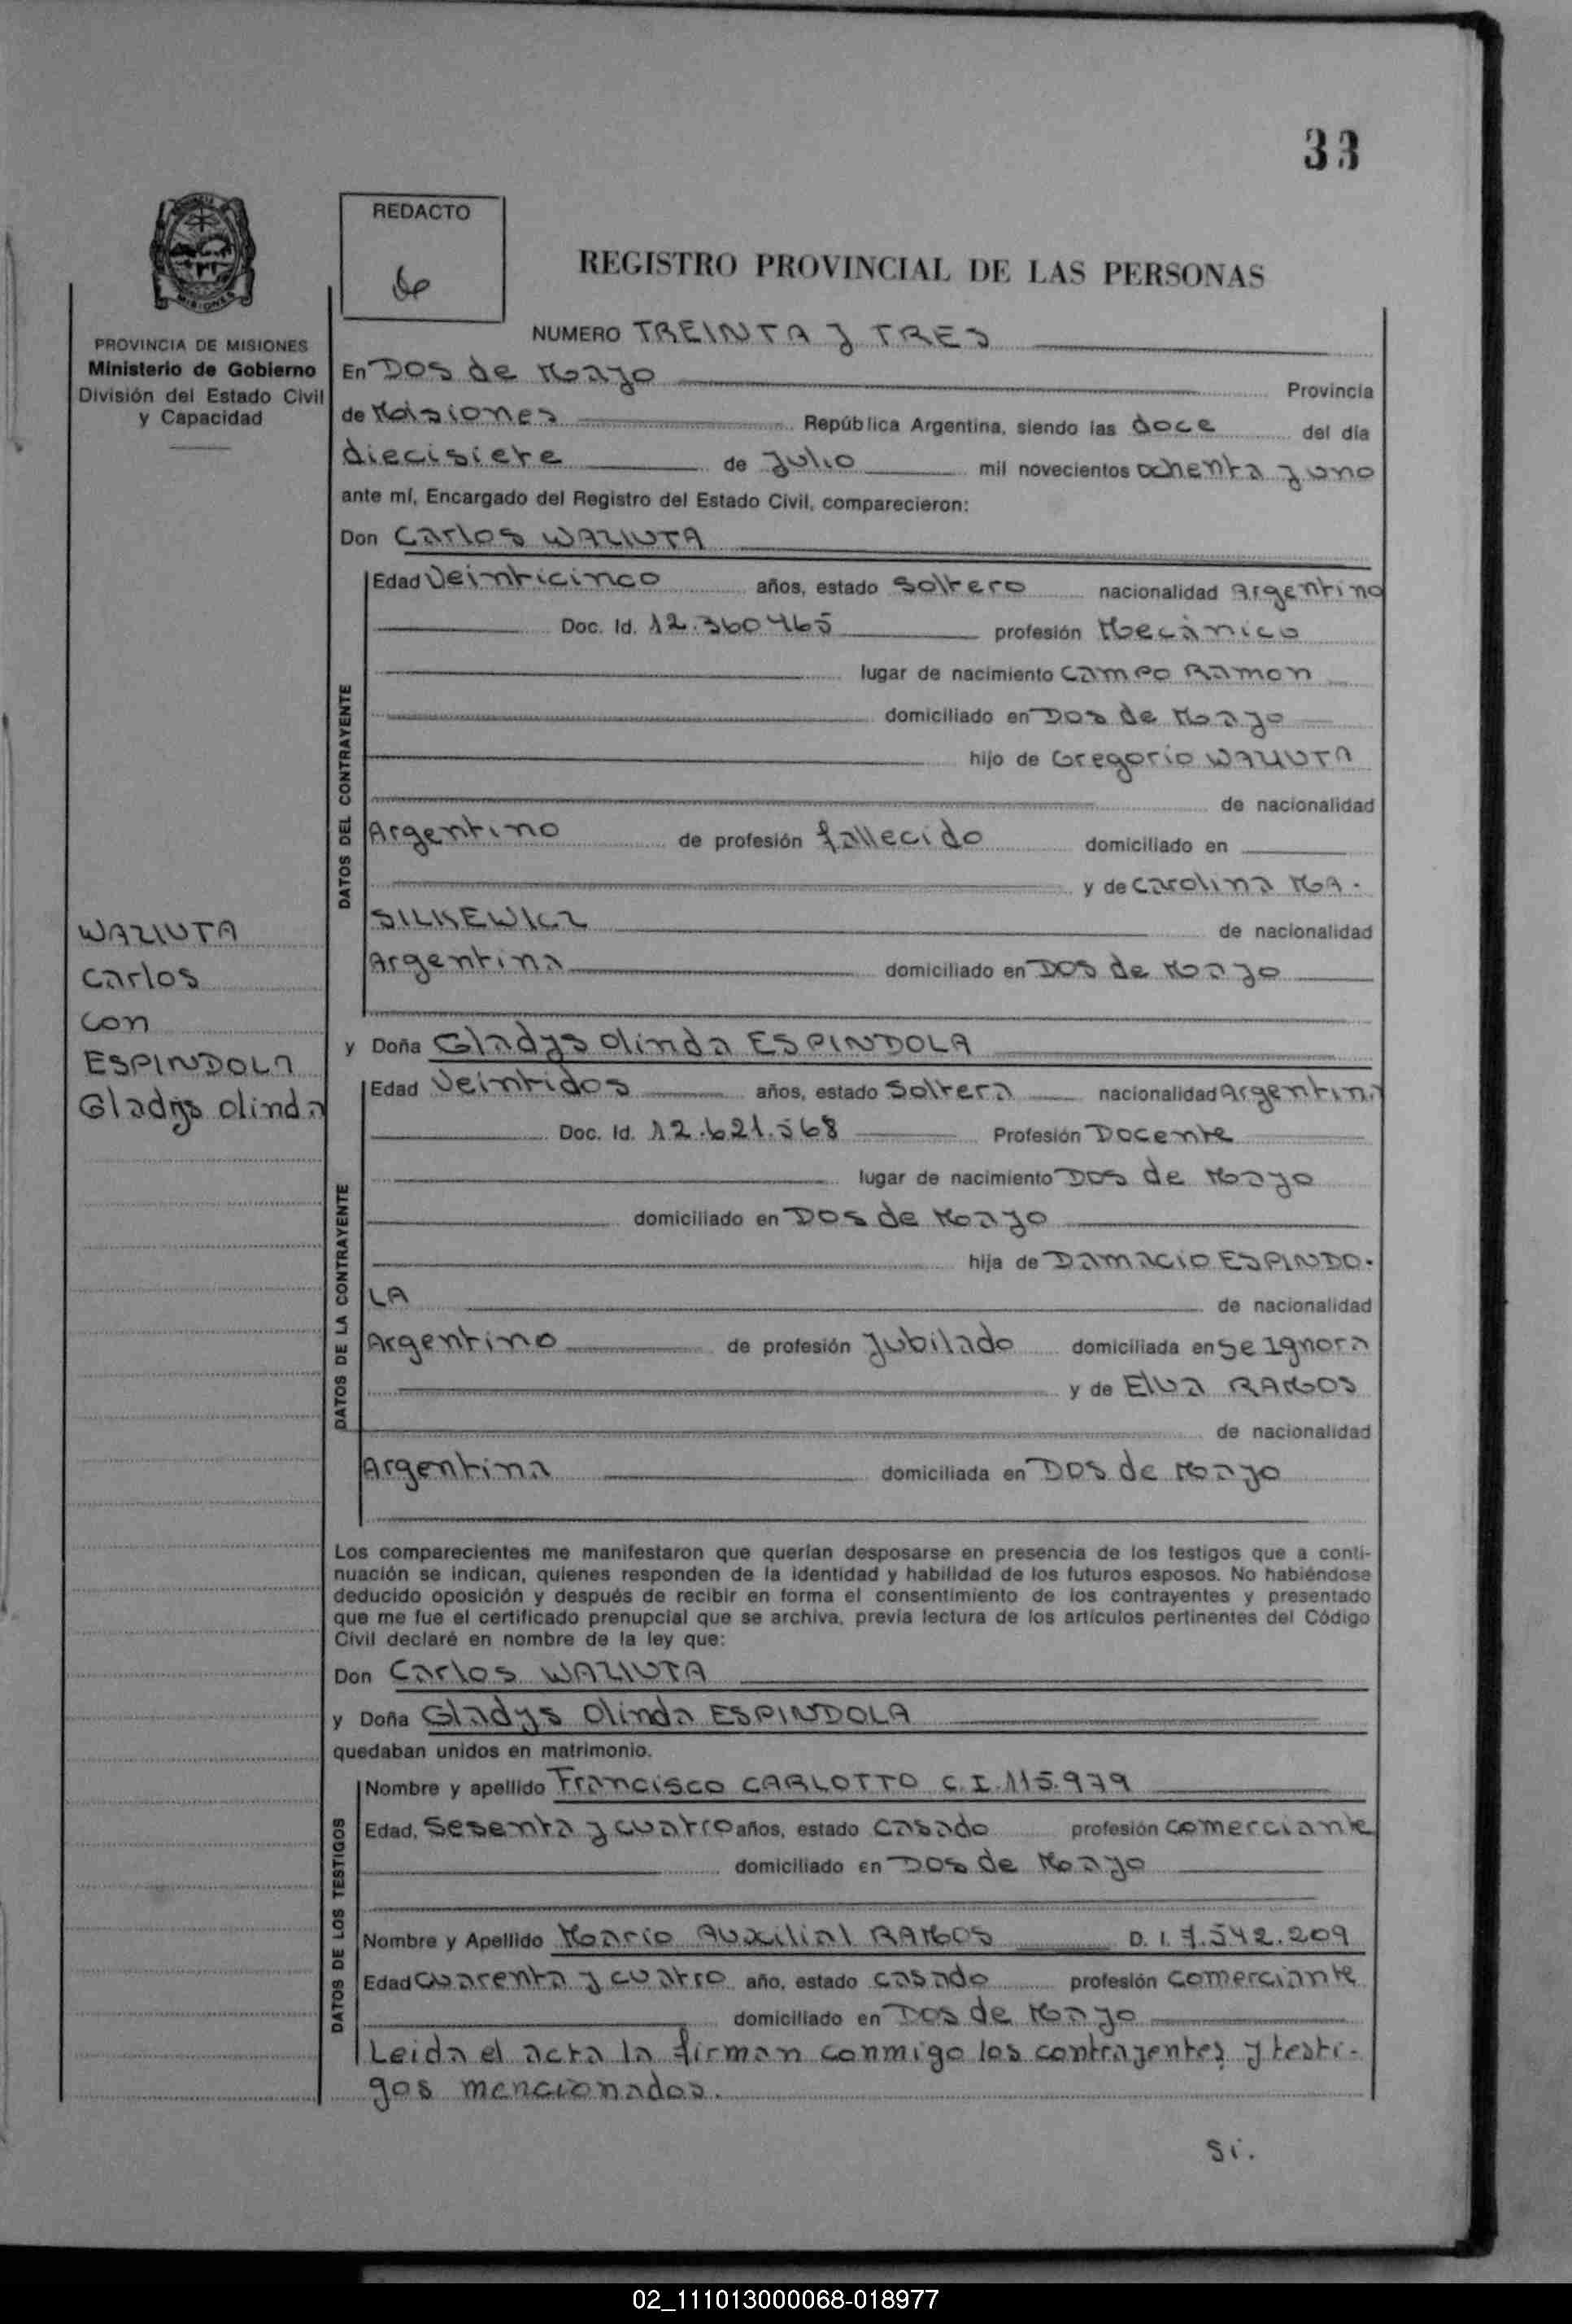 33
REDACTO
REGISTRO PROVINCIAL DE LAS PERSONAS
MISIONES
PROVINCIA DE MISIONES
Ministerio de Gobierno
División del Estado Civil
y Capacidad
NUMERO TREINTA y TRES
En Dos de Mayo Provincia
de Misiones República Argentina, siendo las doce del día
diecisiete de Julio mil novecientos ochenta y uno
ante mí, Encargado del Registro del Estado Civil, comparecieron:
Don Carlos WAZIUTA
DATOS DEL CONTRAYENTE
Edad Veinticinco años, estado Soltero nacionalidad Argentino
Doc. Id. 12.360465 profesión Mecànico
lugar de nacimiento Campo Ramon
domiciliado en Dos de Mayo
hijo de Gregorio WAZIUTA
de nacionalidad
Argentino de profesión fallecido domiciliado en
y de Carolina MA-
SILKEWICZ de nacionalidad
Argentina domiciliado en Dos de Mayo
WAZIUTA
Carlos
con
ESPINDOLA
Gladys Olinda
y Doña Gladys Olinda ESPINDOLA
DATOS DE LA CONTRAYENTE
Edad Veintidos años, estado Soltera nacionalidad Argentina
Doc. Id. 12.621.568 Profesión Docente
lugar de nacimiento Dos de Mayo
domiciliado en Dos de Mayo
hija de Damacio ESPINDO-
LA de nacionalidad
Argentino de profesión Jubilado domiciliada en Se Ignora
y de Elva RAMOS
de nacionalidad
Argentina domiciliada en Dos de Mayo
Los comparecientes me manifestaron que querían desposarse en presencia de los testigos que a conti-
nuación se indican, quienes responden de la identidad y habilidad de los futuros esposos. No habiéndose
deducido oposición y después de recibir en forma el consentimiento de los contrayentes y presentado
que me fue el certificado prenupcial que se archiva, previa lectura de los artículos pertinentes del Código
Civil declaré en nombre de la ley que:
Don Carlos WAZIUTA
y Doña Gladys Olinda ESPINDOLA
quedaban unidos en matrimonio.
DATOS DE LOS TESTIGOS
Nombre y apellido Francisco CARLOTTO C.I. 115.979
Edad, Sesenta y cuatro años, estado Casado profesión comerciante
domiciliado en Dos de Mayo
Nombre y Apellido Mario Auxilial RAMOS D.I. 7.542.209
Edad Cuarenta y cuatro año, estado casado profesión comerciante
domiciliado en Dos de Mayo
Leida el acta la firman conmigo los contrayentes y testi-
gos mencionados.
Si.
02_111013000068-018977